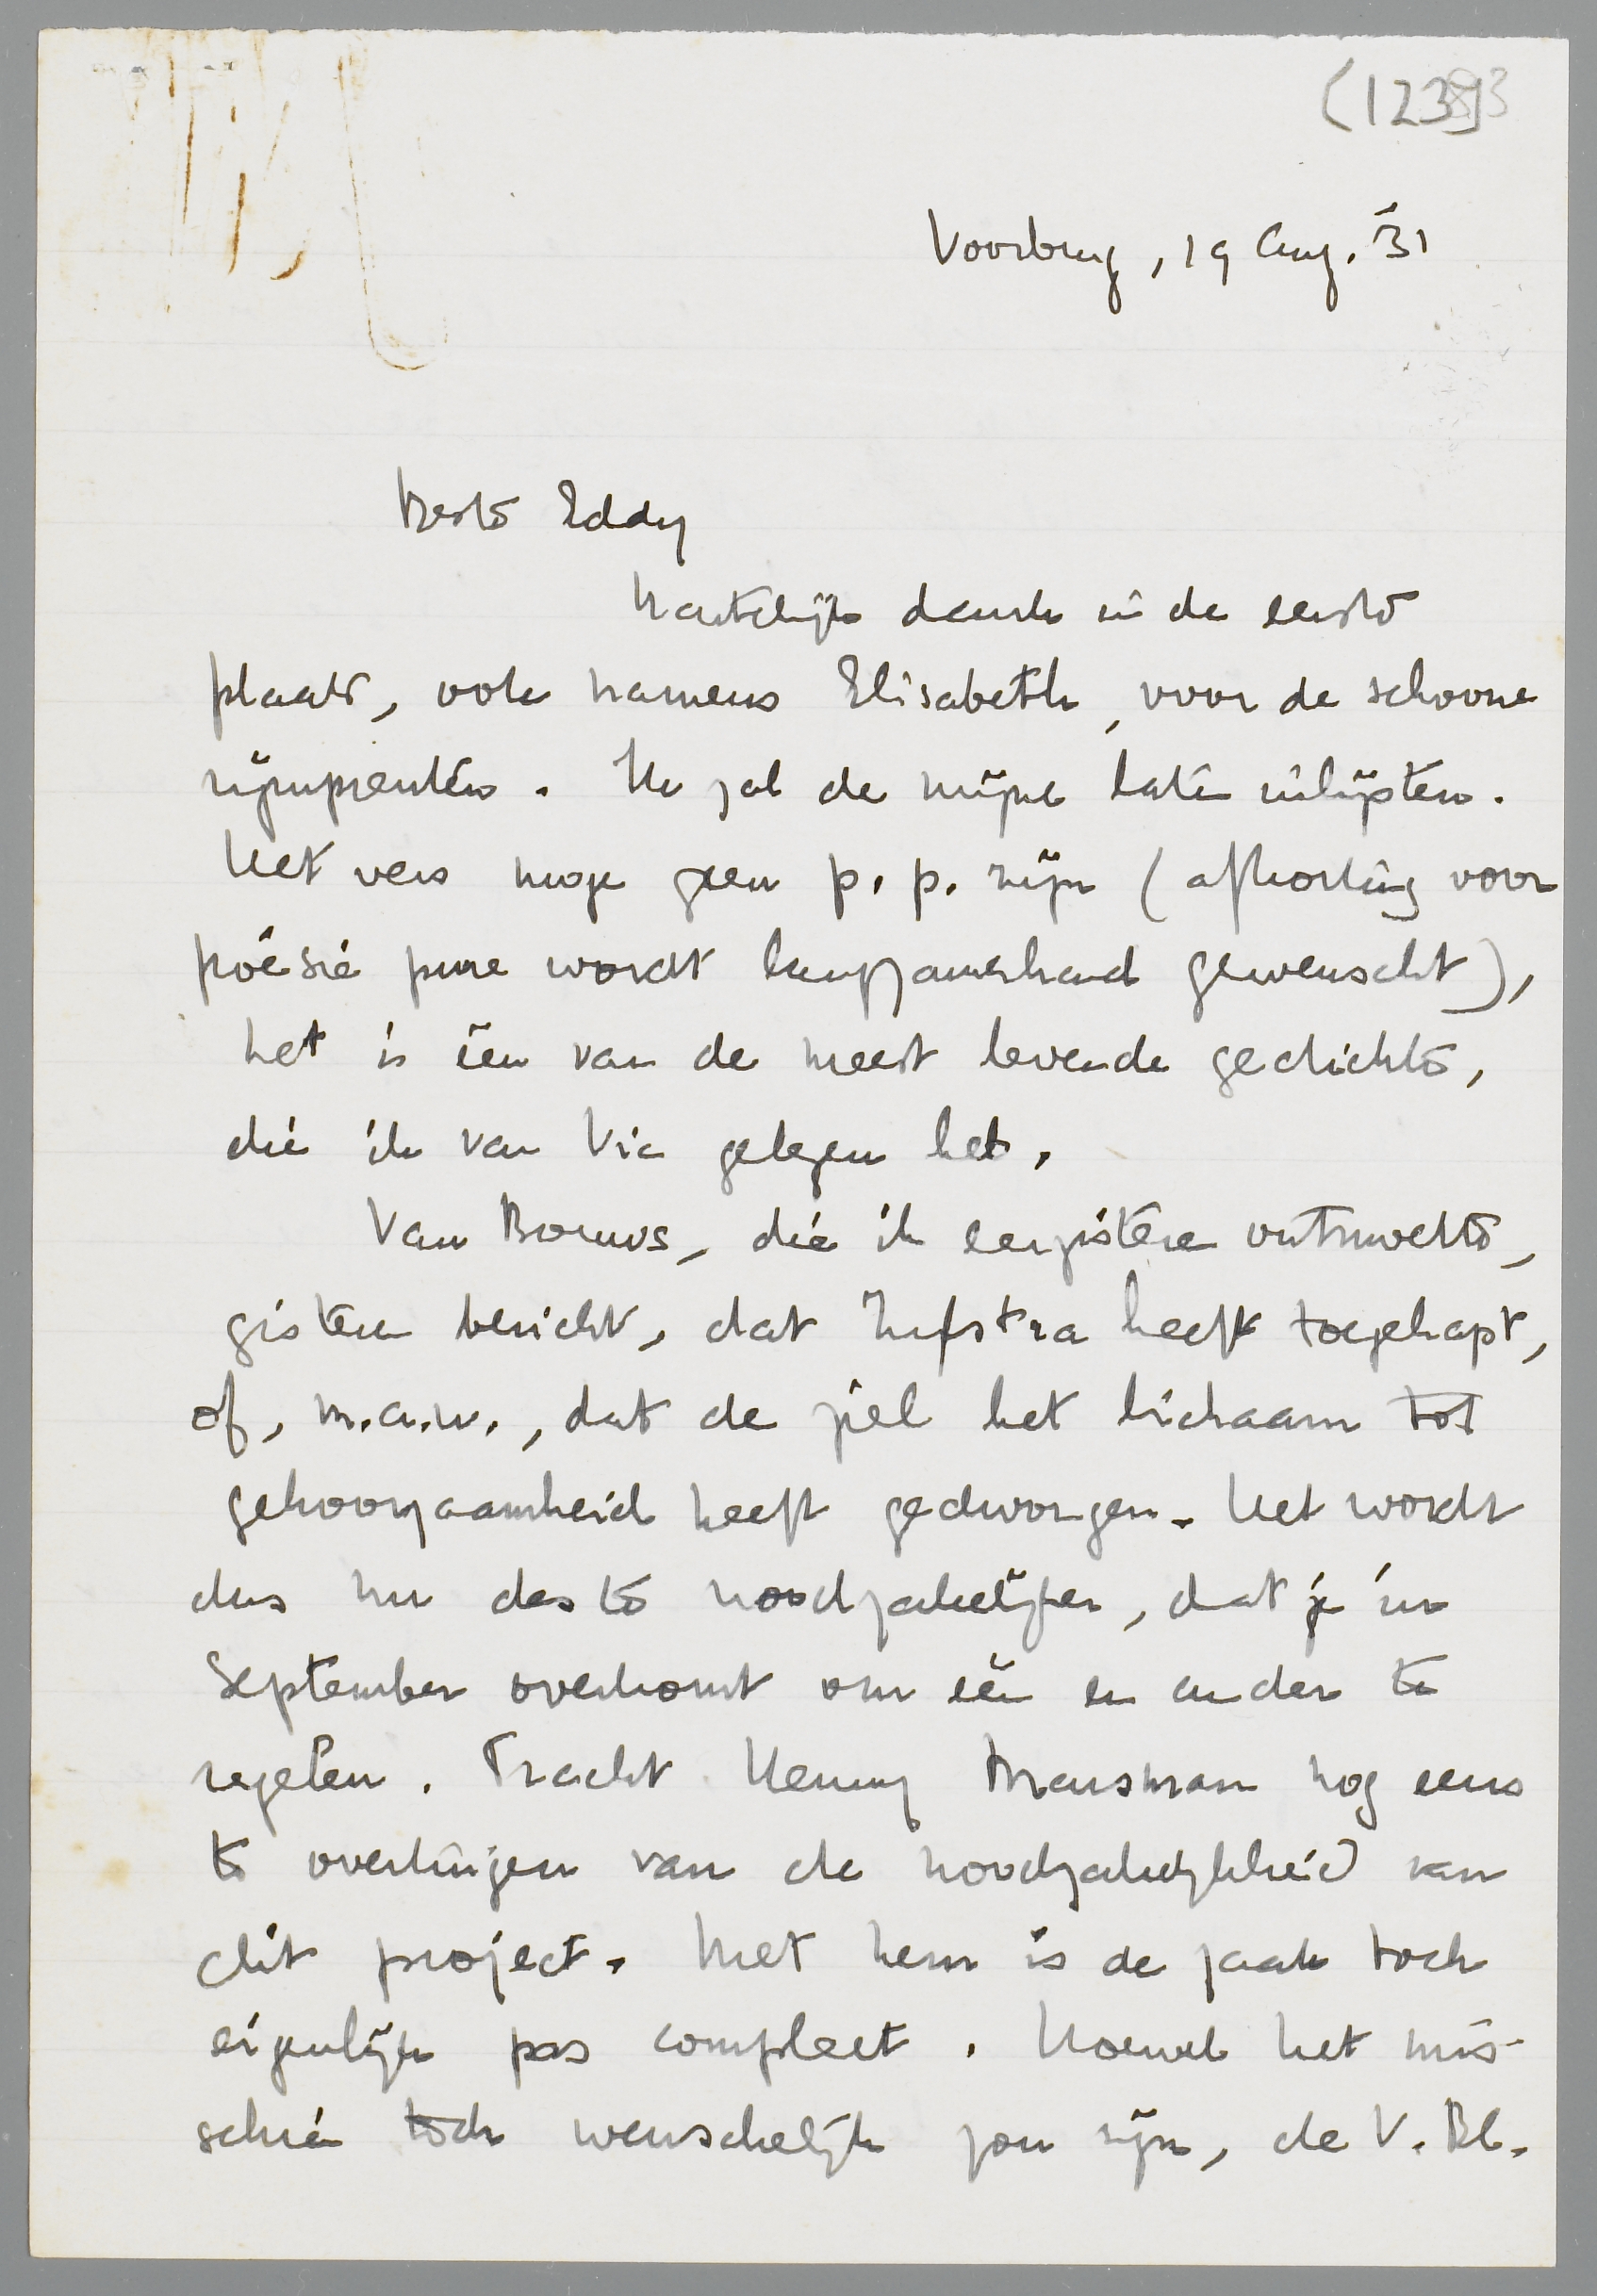 (1239)3
Voorburg, 19 Aug. '31
Beste Eddy
Hartelijk dank in de eerste
plaats, ook namens Elisabeth, voor de schoone
rijmprenten. Ik zal de mijne laten inlijsten.
Het vers moge geen p.p. zijn (afkorting voor
poésie pure wordt langzamerhand gewenscht),
het is één van de meest levende gedichten,
die ik van Vic gelezen heb.
Van Bouws, die ik eergisteren ontmoette,
gisteren bericht, dat Zijlstra heeft toegehapt,
of, m.a.w., dat de ziel het lichaam tot
gehoorzaamheid heeft gedwongen. Het wordt
dus nu des te noodzakelijker, dat je in
September overkomt om één en ander te
regelen. Tracht Henny Marsman nog eens
te overtuigen van de noodzakelijkheid van
dit project. Met hem is de zaak toch
eigenlijk pas compleet. Hoewel het mis-
schien toch wenschelijk zou zijn, de V. Bl.